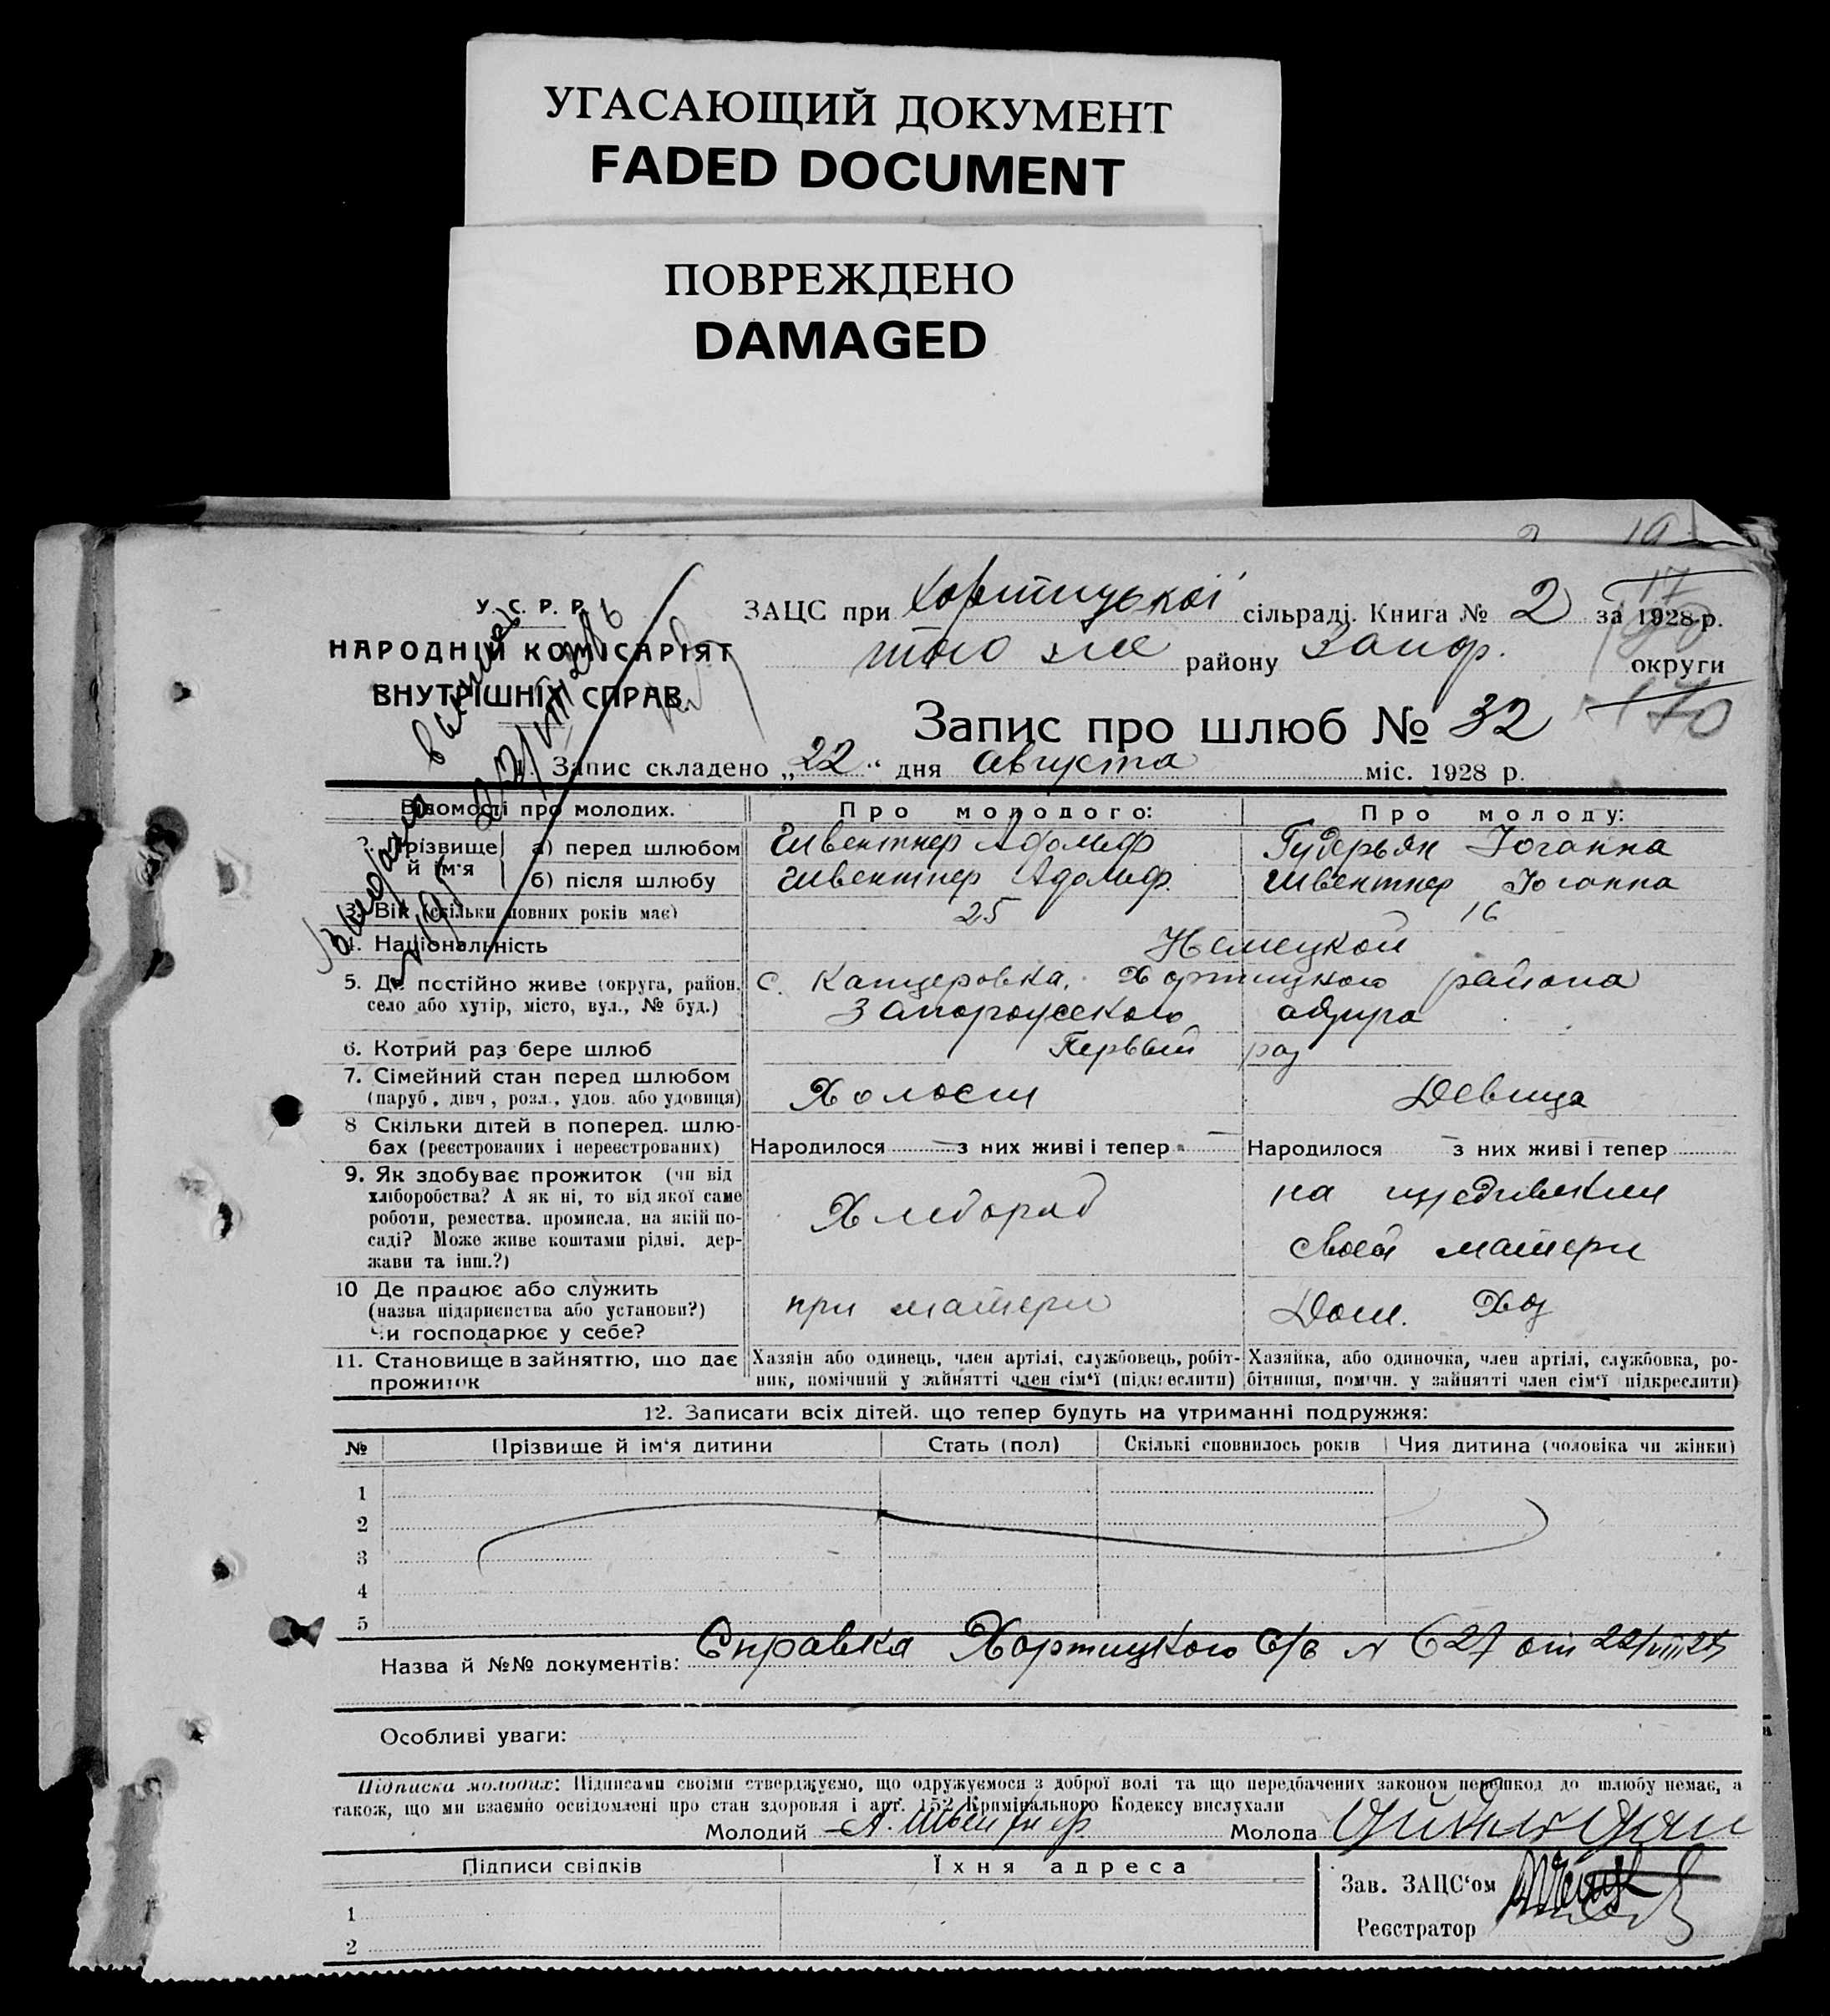 УГАСАЮЩИЙ ДОКУМЕНТ
FADED DOCUMENT
ПОВРЕЖДЕНО
DAMAGED
У. С. Р. Р.
НАРОДНІЙ КОМІСАРІЯТ
ВНУТРІШНІХ СПРАВ.
ЗАЦС при Хортицької сільраді. Книга № 2 за 1928 р.
того же району Запор. округи
170
Запис про шлюб № 32
1. Запис складено „22“ дня августа міс. 1928 р.
Відомості про молодих. Про молодого: Про молоду:
2. Прізвище й ім'я а) перед шлюбом Швентнер Адольф Гудерьян Іоганна
б) після шлюбу Швентнер Адольф. Швентнер Іоганна
3. Вік (скільки повних років має) 25 16
4. Національність Немецкой
5. Де постійно живе (округа, район, село або хутір, місто, вул., № буд.) с. Канцеровка, Хортицкого района
Запорожского округа
6. Котрий раз бере шлюб Первый раз
7. Сімейний стан перед шлюбом
(паруб., дівч., розл., удов. або удовиця) Холост Девица
8 Скільки дітей в поперед. шлюбах (реєстрованих і нереєстрованих) Народилося — з них живі і тепер — Народилося — з них живі і тепер
9. Як здобуває прожиток (чи від
хліборобства? А як ні, то від якої саме
роботи, ремества, промисла, на якій посаді? Може живе коштами рідні, держави та інш.?)
Хлебороб
на иждивении
своей матери
10 Де працює або служить
(назва підприєнства або установи?)
Чи господарює у себе?
при матери Дом. Хоз
11. Становище в зайняттю, що дає
прожиток
Хазяін або одинець, член артілі, службовець, робітник, помічний у зайнятті член сім'ї (підкреслити)
Хазяйка, або одиночка, член артілі, службовка, робітниця, помічн. у зайнятті член сім'ї підкреслити)
12. Записати всіх дітей. що тепер будуть на утриманні подружжя:
№ Прізвище й ім'я дитини Стать (пол) Скількі сповнилось років Чия дитина (чоловіка чи жінки)
1
2
3
4
5
Назва й №№ документів: Справка Хортицкого с/с № 627 от 22/VIII 28
Особливі уваги:
Підписка молодих: Підписами своїми стверджуємо, що одружуємося з доброї волі та що передбачених законом перешкод до шлюбу немає, а
також, що ми взаємно освідомлені про стан здоровля і арт. 152 Кримінального Кодексу вислухали
Молодий А. Швентнер Молода
Підписи свідків Їхня адреса
Зав. ЗАЦС'ом
1
Реєстратор
2